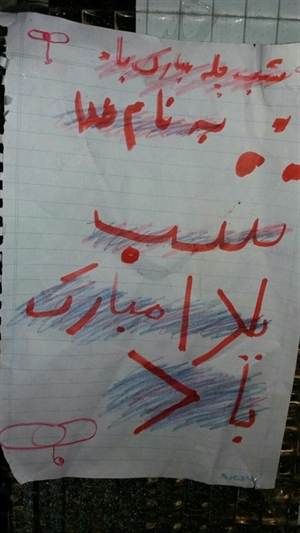 شب چله مبارک باد
به نام خدا
شب
یلدا مبارک
باد